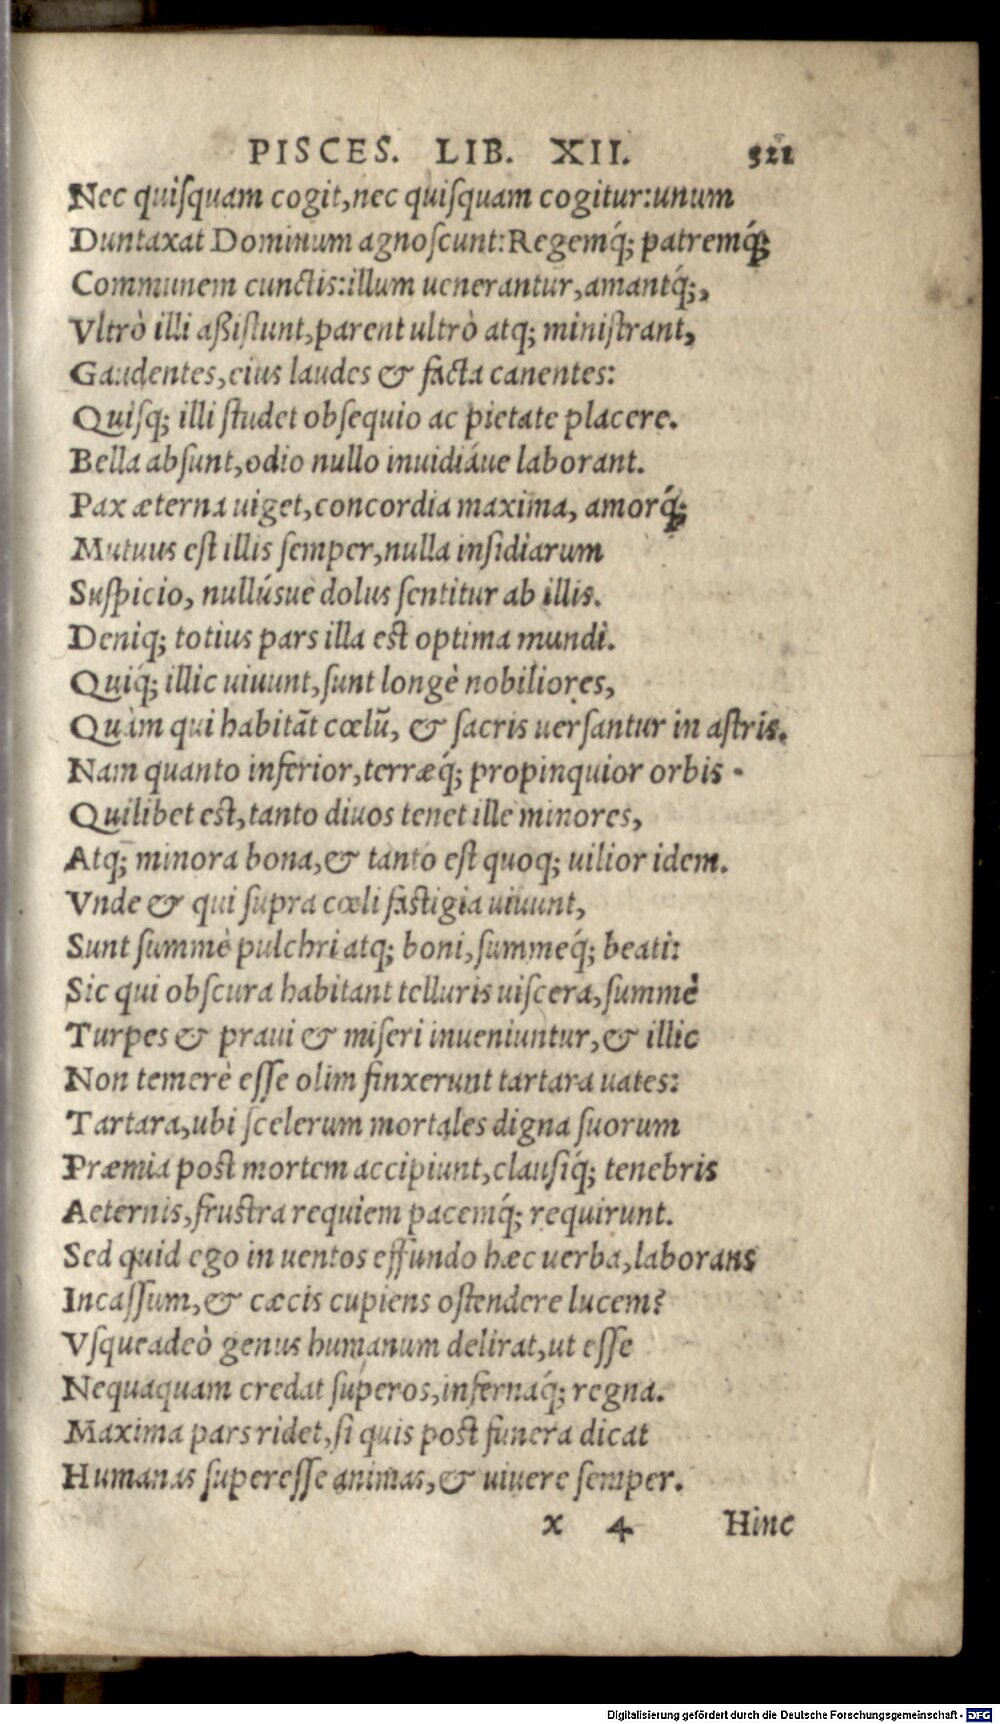 PISCES. LIB. XII. 321
Nec quiſquam cogit, nec quiſquam cogitur: unum
Duntaxat Dominum agnoſcunt: Regemq́; patremq́;
Communem cunctis: illum uenerantur, amantq́;,
Vltrò illi aßiſtunt, parent ultrò atq; miniſtrant,
Gaudentes, eius laudes & facta canentes:
Quiſq; illi ſtudet obſequio ac pietate placere.
Bella abſunt, odio nullo inuidiáue laborant.
Pax æterna uiget, concordia maxima, amorq́;
Mutuus eſt illis ſemper, nulla inſidiarum
Suſpicio, nullúsue dolus ſentitur ab illis.
Deniq; totius pars illa eſt optima mundi.
Quiq́; illic uiuunt, ſunt longè nobiliores,
Quàm qui habitãt cœlũ, & ſacris uerſantur in aſtris.
Nam quanto inferior, terræq́; propinquior orbis
Quilibet eſt, tanto diuos tenet ille minores,
Atq; minora bona, & tanto eſt quoq; uilior idem.
Vnde & qui ſupra cœli faſtigia uiuunt,
Sunt ſummè pulchri atq; boni, ſummeq́; beati:
Sic qui obſcura habitant telluris uiſcera, ſummè
Turpes & praui & miſeri inueniuntur, & illic
Non temerè eſſe olim finxerunt tartara uates:
Tartara, ubi ſcelerum mortales digna ſuorum
Præmia poſt mortem accipiunt, clauſiq́; tenebris
Aeternis, fruſtra requiem pacemq́; requirunt.
Sed quid ego in uentos effundo hæc uerba, laborans
Incaſſum, & cæcis cupiens oſtendere lucem?
Vſqueadeò genus humanum delirat, ut eſſe
Nequaquam credat ſuperos, infernaq́; regna.
Maxima pars ridet, ſi quis poſt funera dicat
Humanas ſupereſſe animas, & uiuere ſemper.
x 4 Hinc
Digitalisierung gefördert durch die Deutsche Forschungsgemeinschaft - DFG